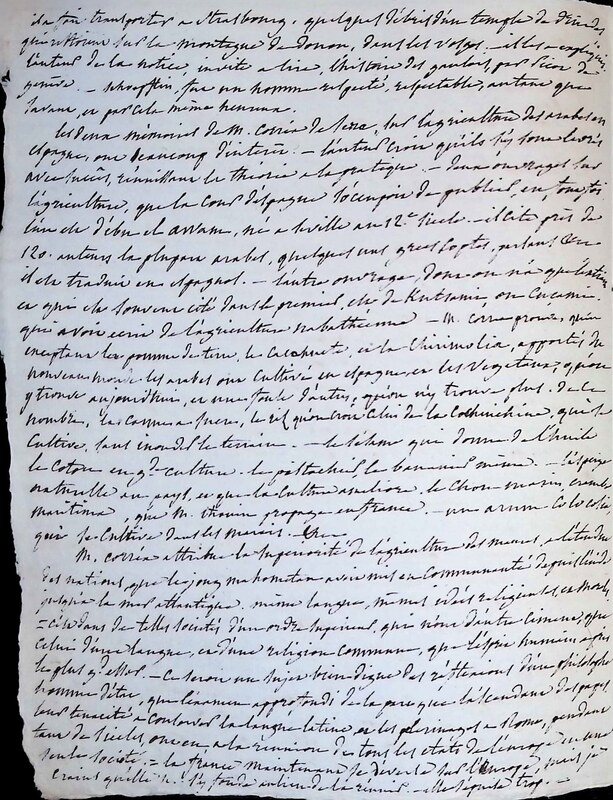 il a fait transporter a Strasbourg, quelques débris d'un temple de druides
qui se trouve sur la montagne de donon, dans les vosges. — il les a expliqués
l'auteur de la notice invite a lire, l'histoire des gaulois, par
genève. — Schoepflin, fut un homme respecté, respectable, autant que
savant, et par cela même heureux.
les deux mémoires de M. Corréa de Serra, sur l'agriculture des arabes en
espagne, ont beaucoup d'intérêt. — l'auteur croit qu'ils s'y sont livrés
avec succès, réunissant la théorie a la pratique. — deux ouvrages sur
l'agriculture, que la Cour d'espagne s'occupoit de publier, en
l'un est d'ebn el awam, né a séville au 12e siècle. — il cite près de
120. auteurs la plupart arabes, quelques uns grecs
il est traduit en espagnol. — l'autre ouvrage, dont on n'a que
et qui est souvent cité dans le premier, est de Kutsami, ou
qui avoit écrit de l'agriculture nabathéenne — M. Correa prouve, qu'en
exceptant la pomme de terre, le Cacahuete, et la Chirimolia, apportés du
nouveau monde les arabes ont cultivé en espagne, et les végétaux, qu'on
y trouve aujourd'hui, et une foule d'autres, qu'on n'y trouve plus. de ce
nombre, la canne a sucre, le riz qu'on croit celui de la Cochinchine, qui se
cultive, sans inonder le terrain. — le sésame qui donne de l'huile
le coton en gde culture. le pistachier, le bananier même. —
naturelle au pays, et que la culture améliore. le chou marin, crambe
maritima, que M. thouin propage en france. — un arum colocasia
qui se cultive dans les marais.
M. corréa attribue la supériorité de l'agriculture des maures, a l'étendue
des nations, que le joug mahométan avoit mis en communauté
jusqu'a la mer atlantique. même langue, mêmes idées religieuses, et morales
— c'est dans de telles sociétés d'un ordre supérieur, qui n'ont d'autre ciment, que
celui d'une langue, et d'une religion commune, que l'espèce humaine a pris
le plus gd essor. — ce seroit un sujet bien digne des réflexions d'un philosophe
homme d'état, que l'examen approfondi de la part que l'ascendant des papes
leur tenacité a conserver la langue latine, et les pelerinages a Rome, pendant
tant de siècles, ont eu, a la réunion de tous les etats de l'europe en une
seule société. — la france maintenant se déverse sur l'Europe, mais je
crains qu'elle ne s'y fonde au lieu de la réunir. — elle